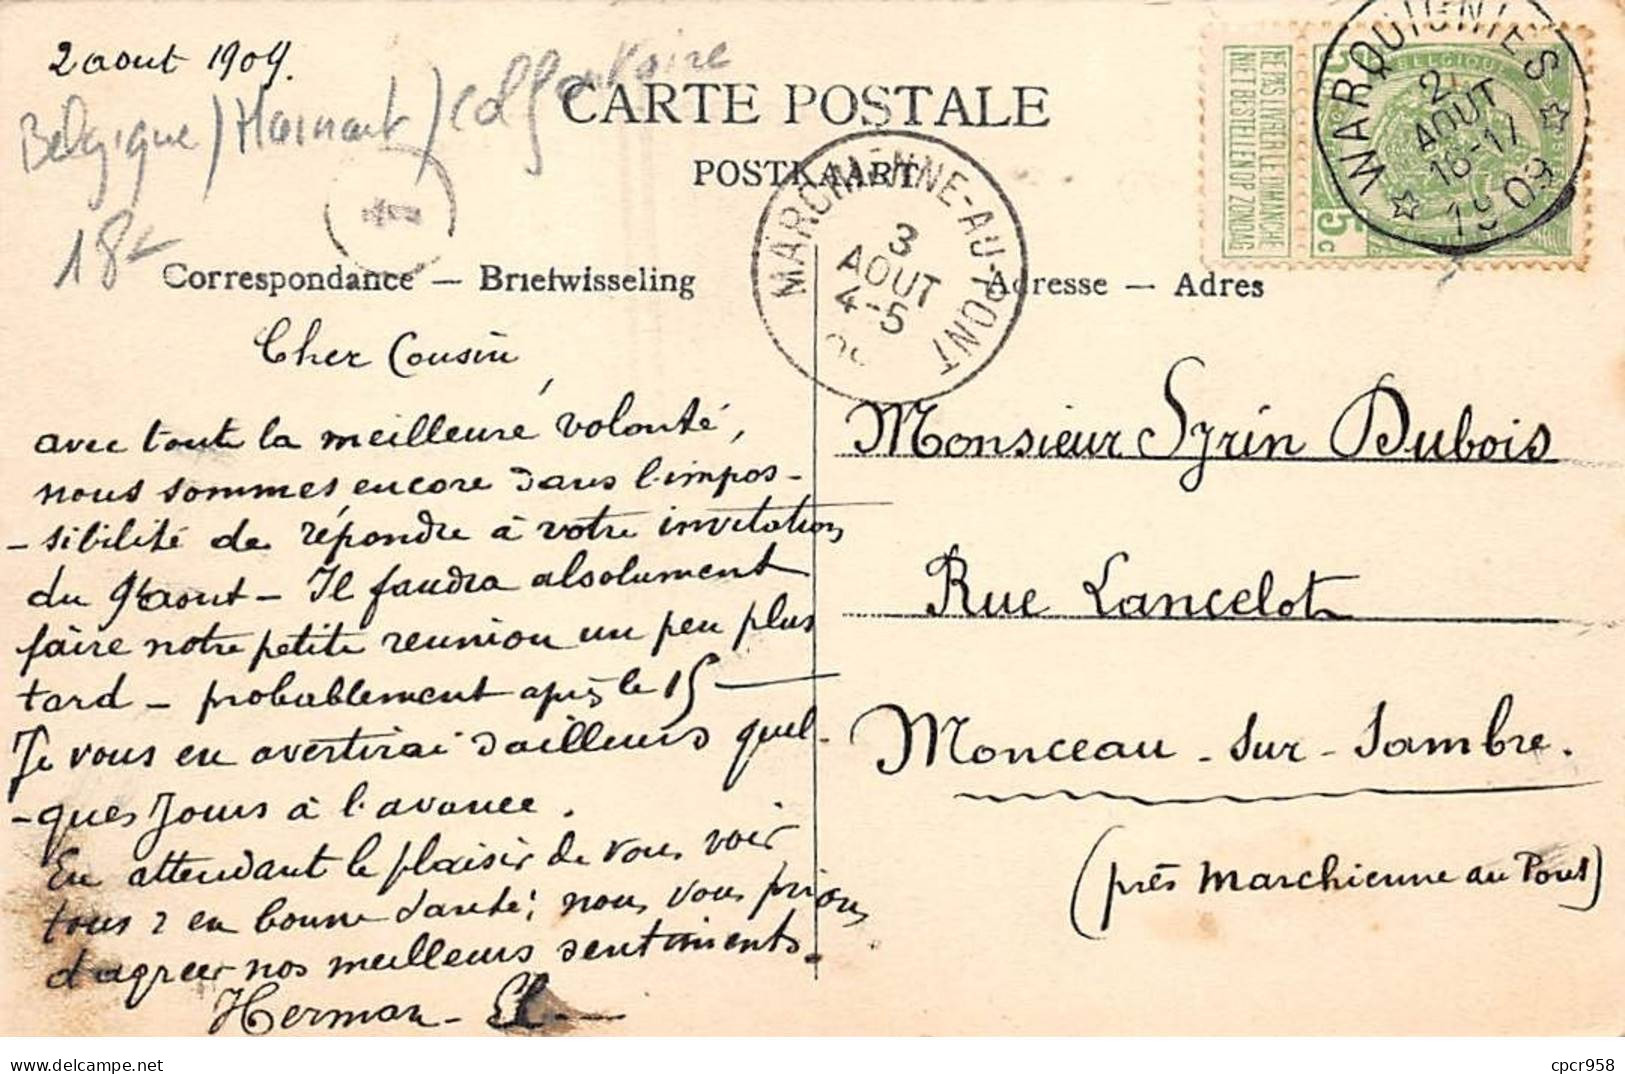 2 aout 1909.
Belgique / Hainaut /
18
CARTE POSTALE
POSTKAART
Correspondance — Briefwisseling
Adresse — Adres
NE PAS LIVRER LE DIMANCHE
NIET BESTELLEN OP ZONDAG
BELGIQUE
5c
WARQUIGNIES
2
AOUT
16-17
1909
MARCHIENNE-AU-PONT
3
AOUT
4-5
09
Cher Cousin,
avec toute la meilleure volonté,
nous sommes encore dans l'impos-
-sibilité de répondre à votre invitation
du 9 aout - Il faudra absolument
faire notre petite reunion un peu plus
tard - probablement après le 15
Je vous en avertirai d'ailleurs quel-
-ques Jours à l'avance.
En attendant le plaisir de vous voir
tous en bonne santé, nous vous prions
d'agréer nos meilleurs sentiments.
Herman
Monsieur Syrin Dubois
Rue Lancelot
Monceau-sur-Sambre.
(près Marchienne au Pont)
www.delcampe.net
cpcr958